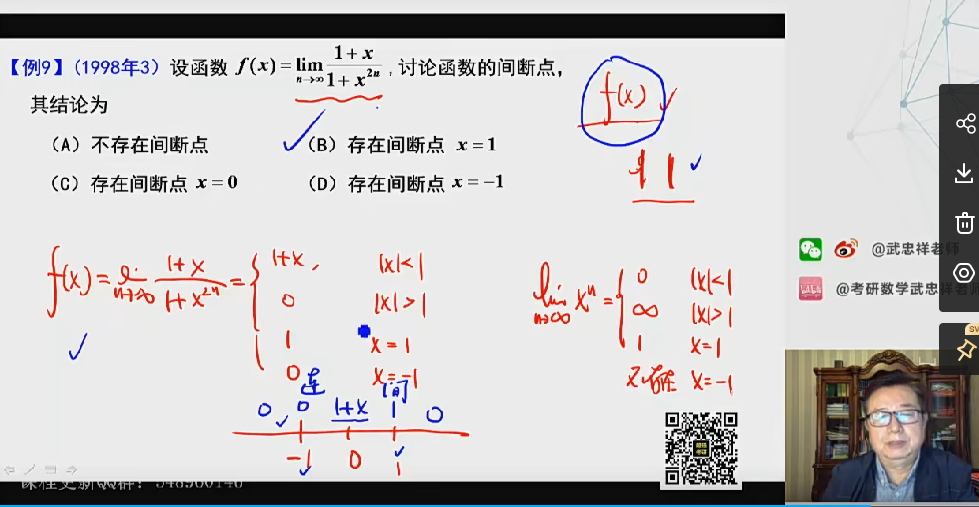 【例9】(1998年3) 设函数 f(x) = lim n→∞ (1+x)/(1+x^{2n}) , 讨论函数的间断点,
其结论为
(A) 不存在间断点 (B) 存在间断点 x = 1
(C) 存在间断点 x = 0 (D) 存在间断点 x = -1
f(x)
-1 1
f(x) = lim n→∞ (1+x)/(1+x^{2n}) = { 1+x, |x|<1
0 |x|>1
1 x=1
0 x=-1
lim n→∞ x^n = { 0 |x|<1
∞ |x|>1
1 x=1
不存在 x=-1
连 间
0 0 1+x 1 0
-1 0 1
@武忠祥老师
@考研数学武忠祥老师
课程更新QQ群: